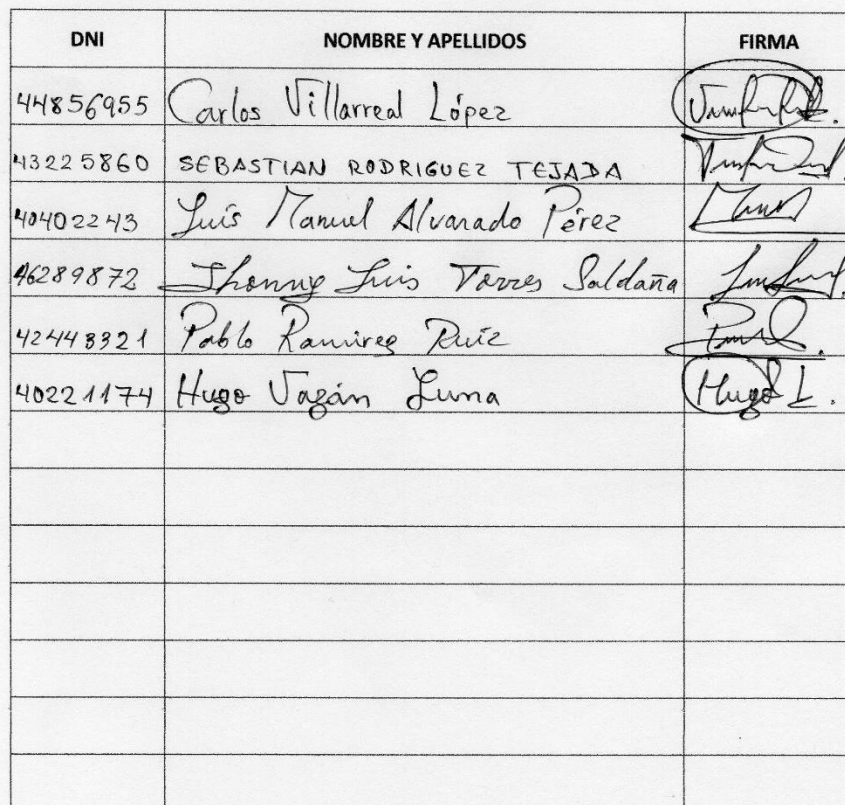 DNI NOMBRE Y APELLIDOS FIRMA
44856955 Carlos Villarreal López
43225860 SEBASTIAN RODRIGUEZ TEJADA
40402243 Luis Manuel Alvarado Pérez
46289872 Jhonny Luis Torres Saldaña
42443321 Pablo Ramirez Ruíz
40221174 Hugo Vazán Luna Hugo L.